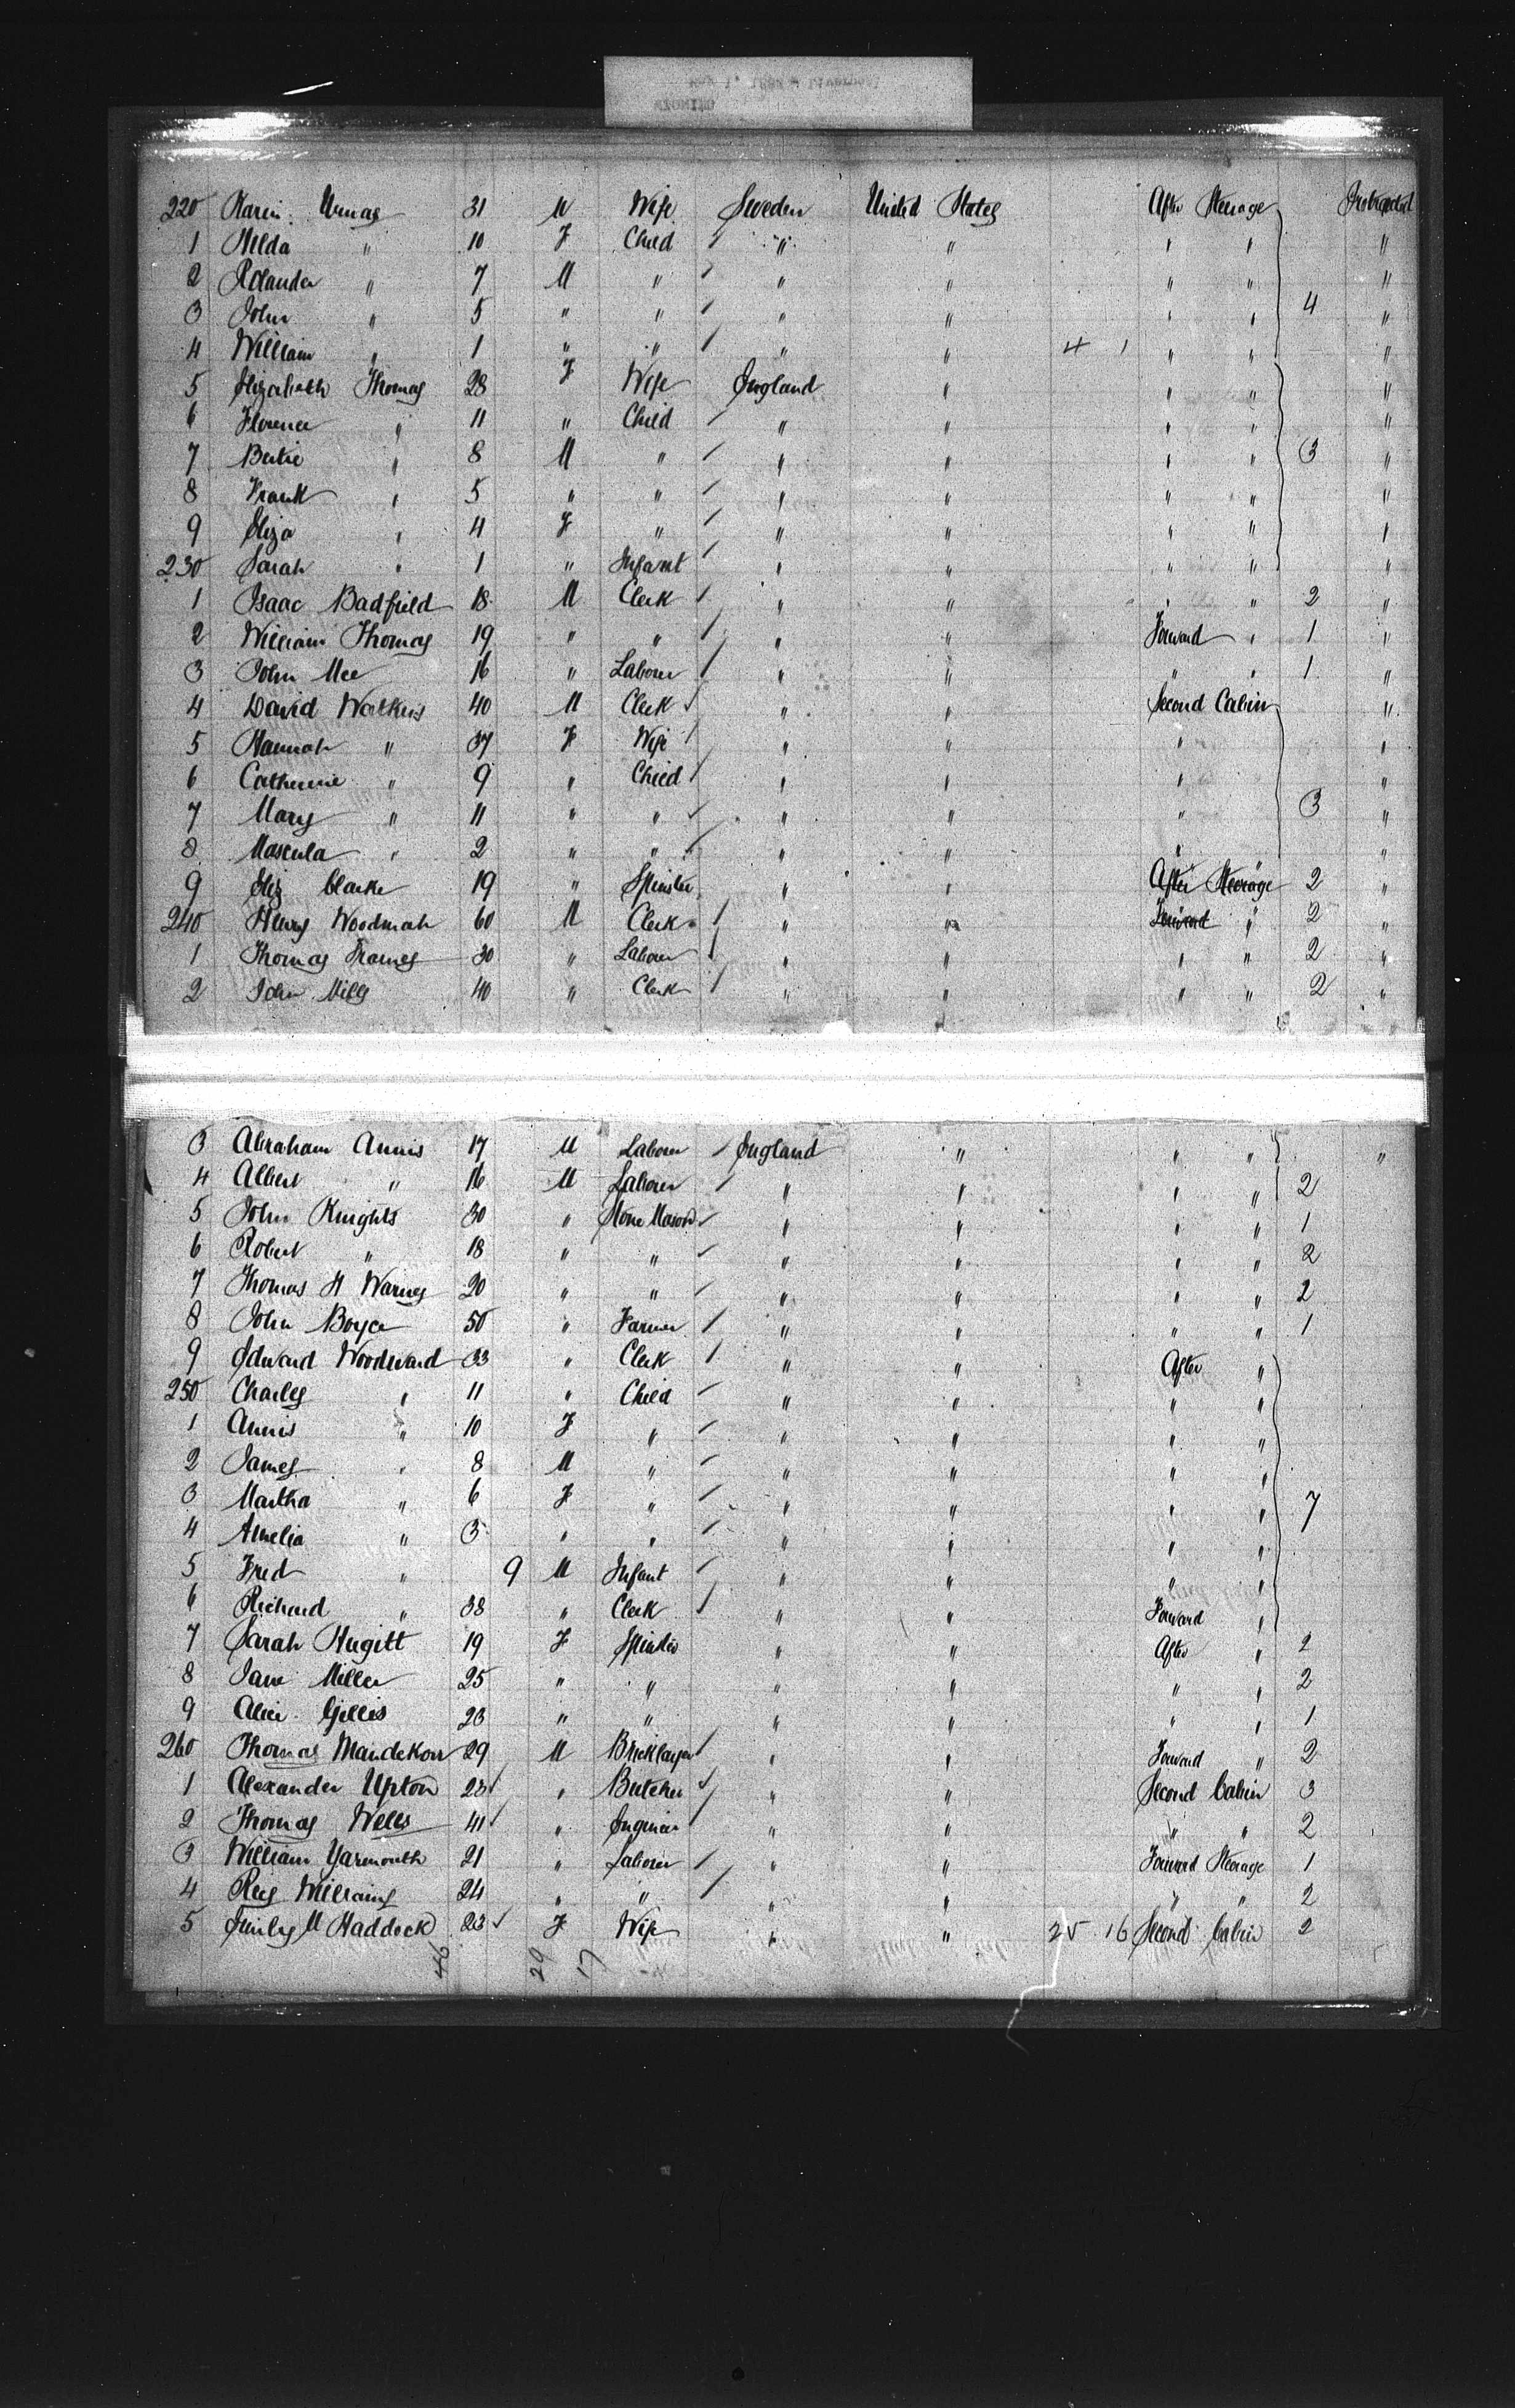 220 Karin Urnas 31 M Wife Sweden United States After Steerage Protracted
1 Hilda " 10 F Child / " " " " "
2 " 7 M " / " " " " "
3 John " 5 " " / " " " " 4 "
4 William " 1 " " / " " 4 1 " " "
5 Elizabeth Thomas 28 F Wife England " " " "
6 Florence " 11 " Child / " " " " "
7 Bertie " 8 M " / " " " " 3 "
8 Frank " 5 " " / " " " " "
9 Eliza " 4 F " / " " " " "
230 Sarah " 1 " Infant / " " " " "
1 Isaac Badfield 18 M Clerk / " " " " 2 "
2 William Thomas 19 " " / " " Forward " 1 "
3 John Mee 16 " Laborer / " " " " 1 "
4 David Watkins 40 M Clerk / " " Second Cabin "
5 Hannah " 37 F Wife / " " " "
6 Catherine " 9 " Child / " " " "
7 Mary " 11 " " / " " " 3 "
8 " 2 " " / " " " " "
9 Eliz Clarke 19 " Spinster " " After Steerage 2 "
240 Henry Woodmah 60 M Clerk / " " Forward " 2 "
1 Thomas 30 " Laborer / " " " " 2 "
2 John Mills 40 " Clerk / " " " " 2 "
3 Abraham Annis 17 M Laborer / England " " " "
4 Albert " 16 M Laborer / " " " " 2
5 John Knights 30 " Stone Mason / " " " " 1
6 Robert " 18 " " / " " " " 2
7 Thomas H Warnes 20 " " / " " " " 2
8 John Boyce 50 " Farmer / " " " " 1
9 Edward Woodward 33 " Clerk / " " After "
250 Charles " 11 " Child / " " " "
1 Annis " 10 F " / " " " "
2 James " 8 M " / " " " "
3 Martha " 6 F " / " " " " 7
4 Amelia " 3 " " / " " " "
5 Fred " 9 M Infant / " " " "
6 Richard " 38 " Clerk / " " Forward "
7 Sarah Hugitt 19 F Spinster " " After " 2
8 Jane Miller 25 " " " " " " 2
9 Alice Gillis 23 " " " " " " 1
260 Thomas 29 M Bricklayer / " " Forward " 2
1 Alexander Upton 23 " Butcher / " " Second Cabin 3
2 Thomas Wells 41 " Engineer / " " " " 2
3 William Yarmouth 21 " Laborer / " " Forward Steerage 1
4 Rees Williams 24 " " / " " " " 2
5 Emily M Haddock 23 F Wife " " 25 16 Second Cabin 2
46 29 17